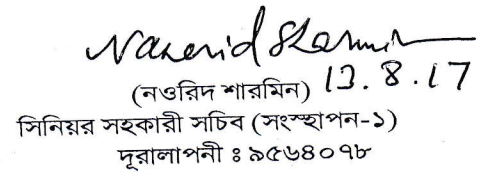 Naherid Sharmin
(নওরিদ শারমিন) 13.8.17
সিনিয়র সহকারী সচিব (সংস্হাপন-১)
দূরালাপনী ঃ ৯৫৬৪০৭৮